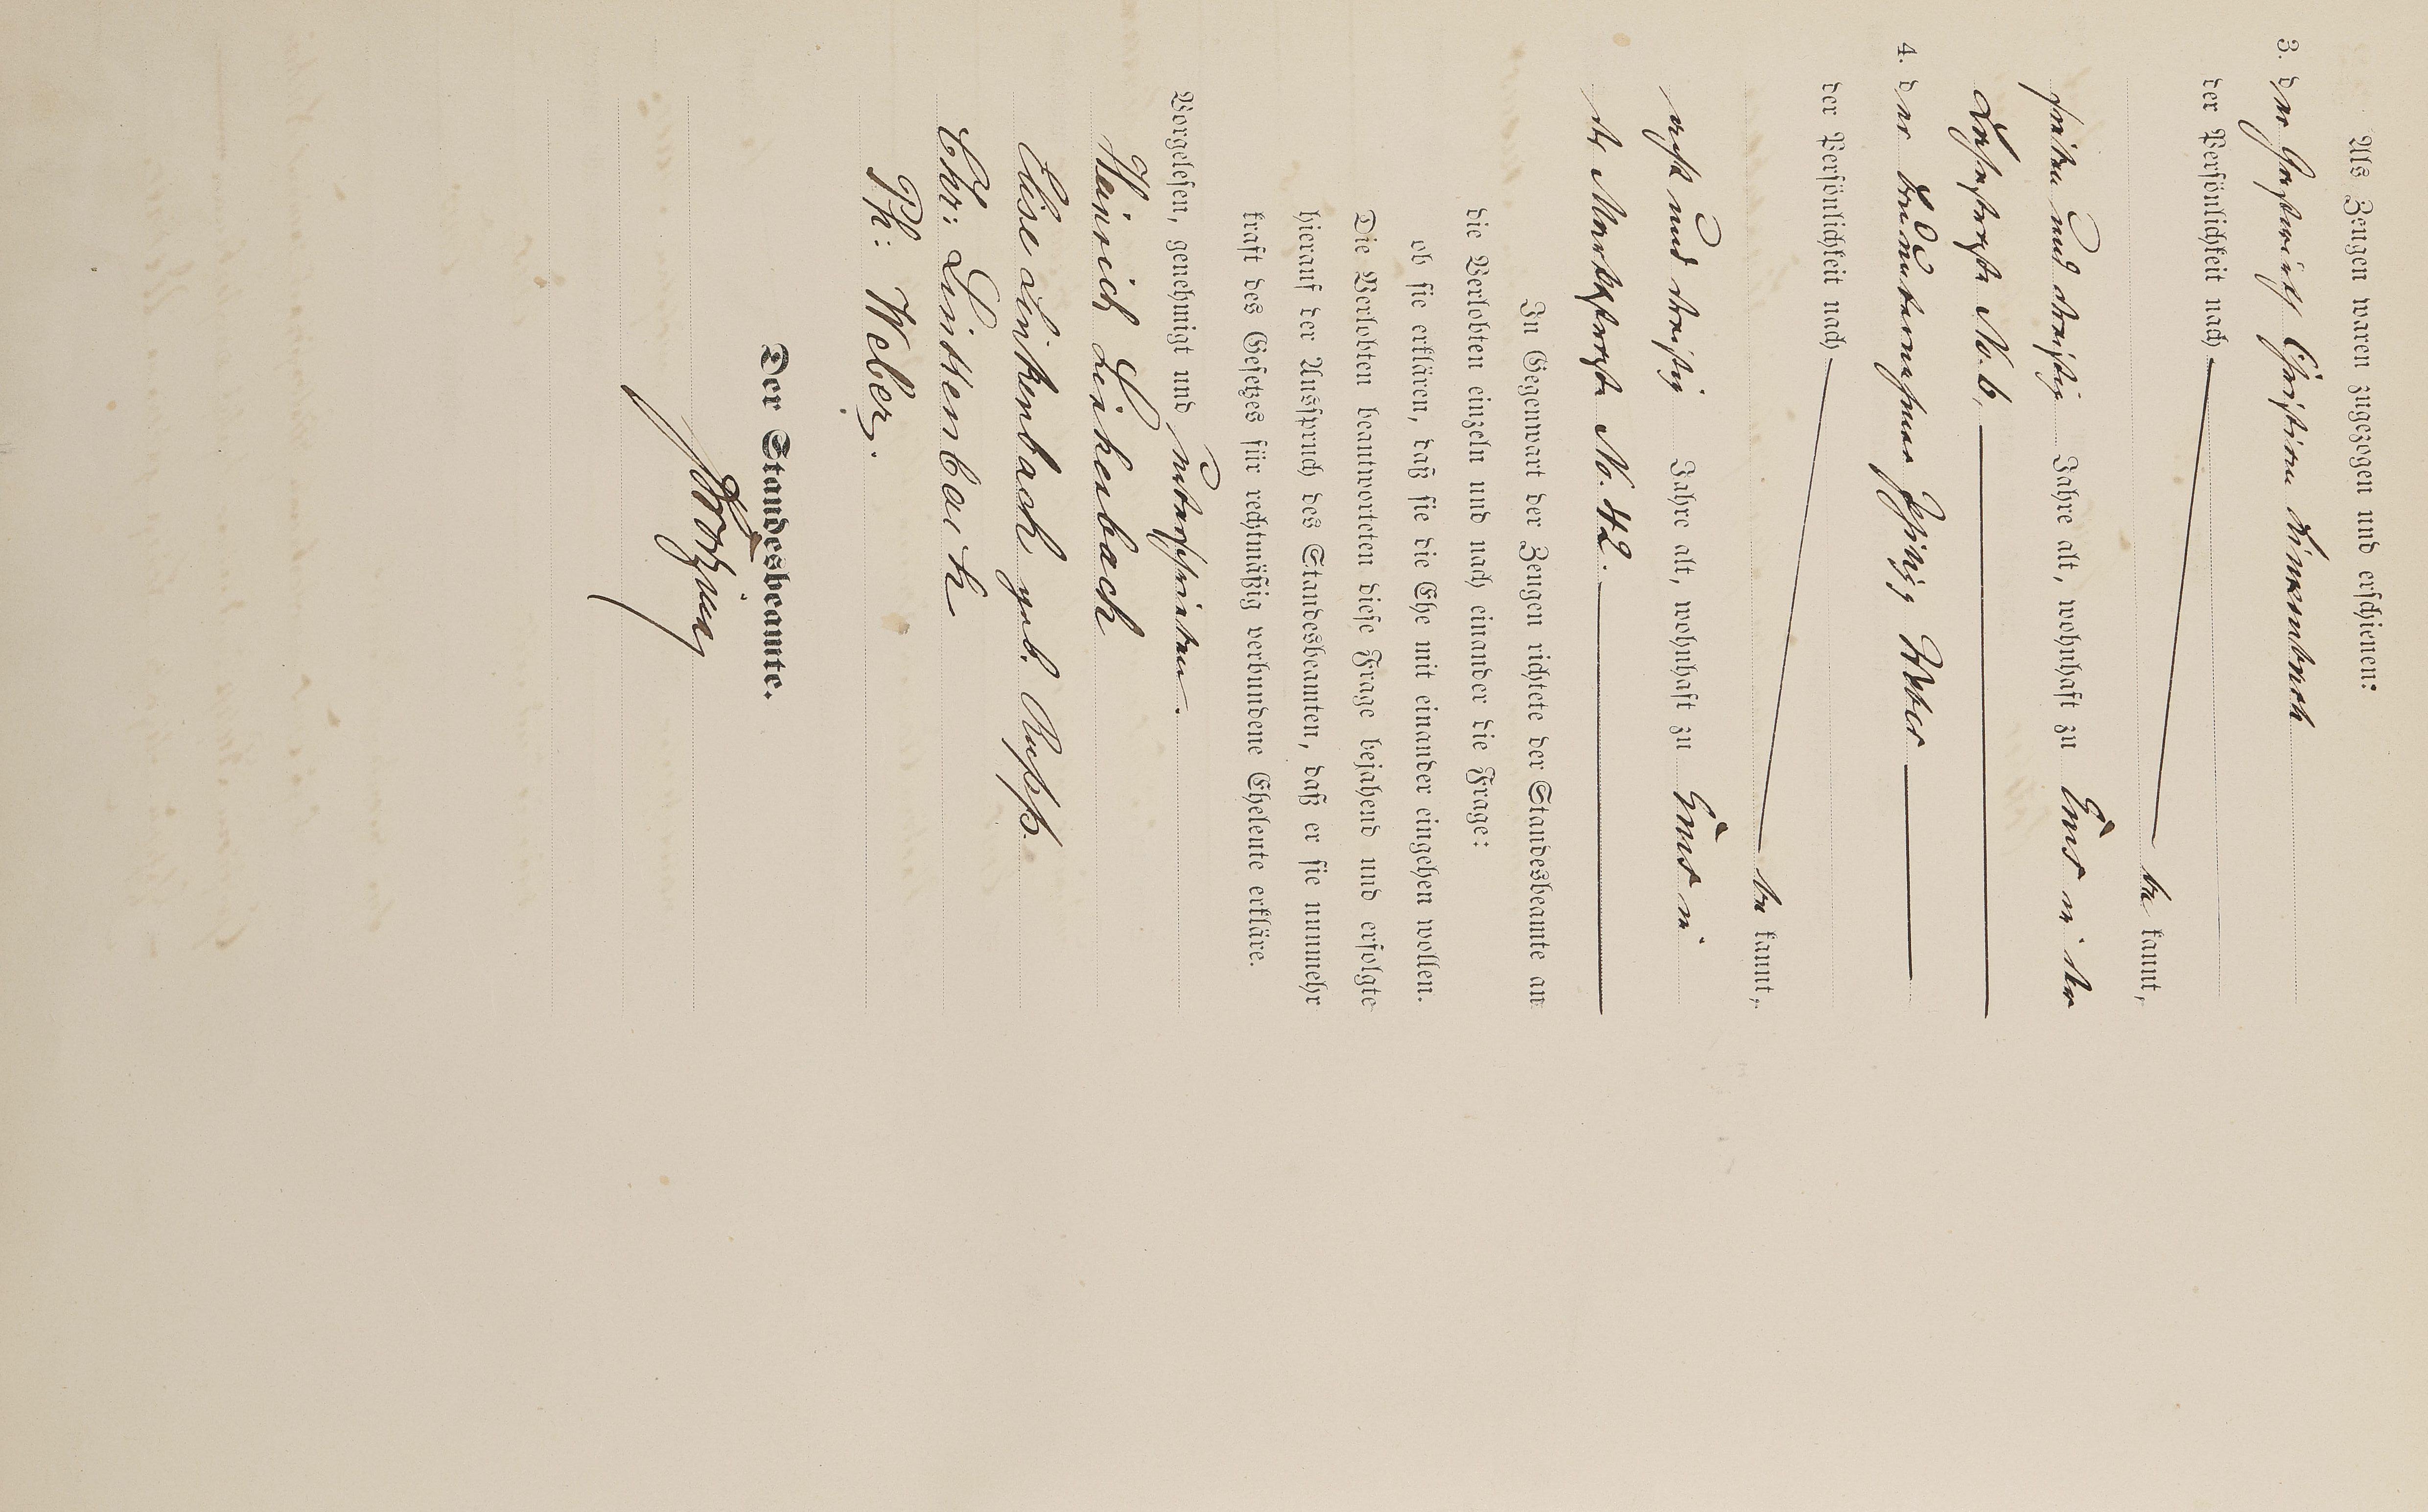 Als Zeugen waren zugezogen und erschienen:
3. der Gastwirth Christian Linkenbach
der Persönlichkeit nach
be kannt,
und dreißig Jahre alt, wohnhaft zu Ems in der
No. 6.
4. der Bauunternehmer Philipp Weber
der Persönlichkeit nach
be kannt,
acht und dreißig Jahre alt, wohnhaft zu Ems in
der Marktstraße No. 42.
In Gegenwart der Zeugen richtete der Standesbeamte an
die Verlobten einzeln und nach einander die Frage:
ob sie erklären, daß sie die Ehe mit einander eingehen wollen.
Die Verlobten beantworteten diese Frage bejahend und erfolgte
hierauf der Ausspruch des Standesbeamten, daß er sie nunmehr
kraft des Gesetzes für rechtmäßig verbundene Eheleute erkläre.
Vorgelesen, genehmigt und unterschrieben.
Heinrich Linkenbach
Elise Linkenbach geb. Rupp.
Chr: Linkenbach
Ph: Weber.
Der Standesbeamte.